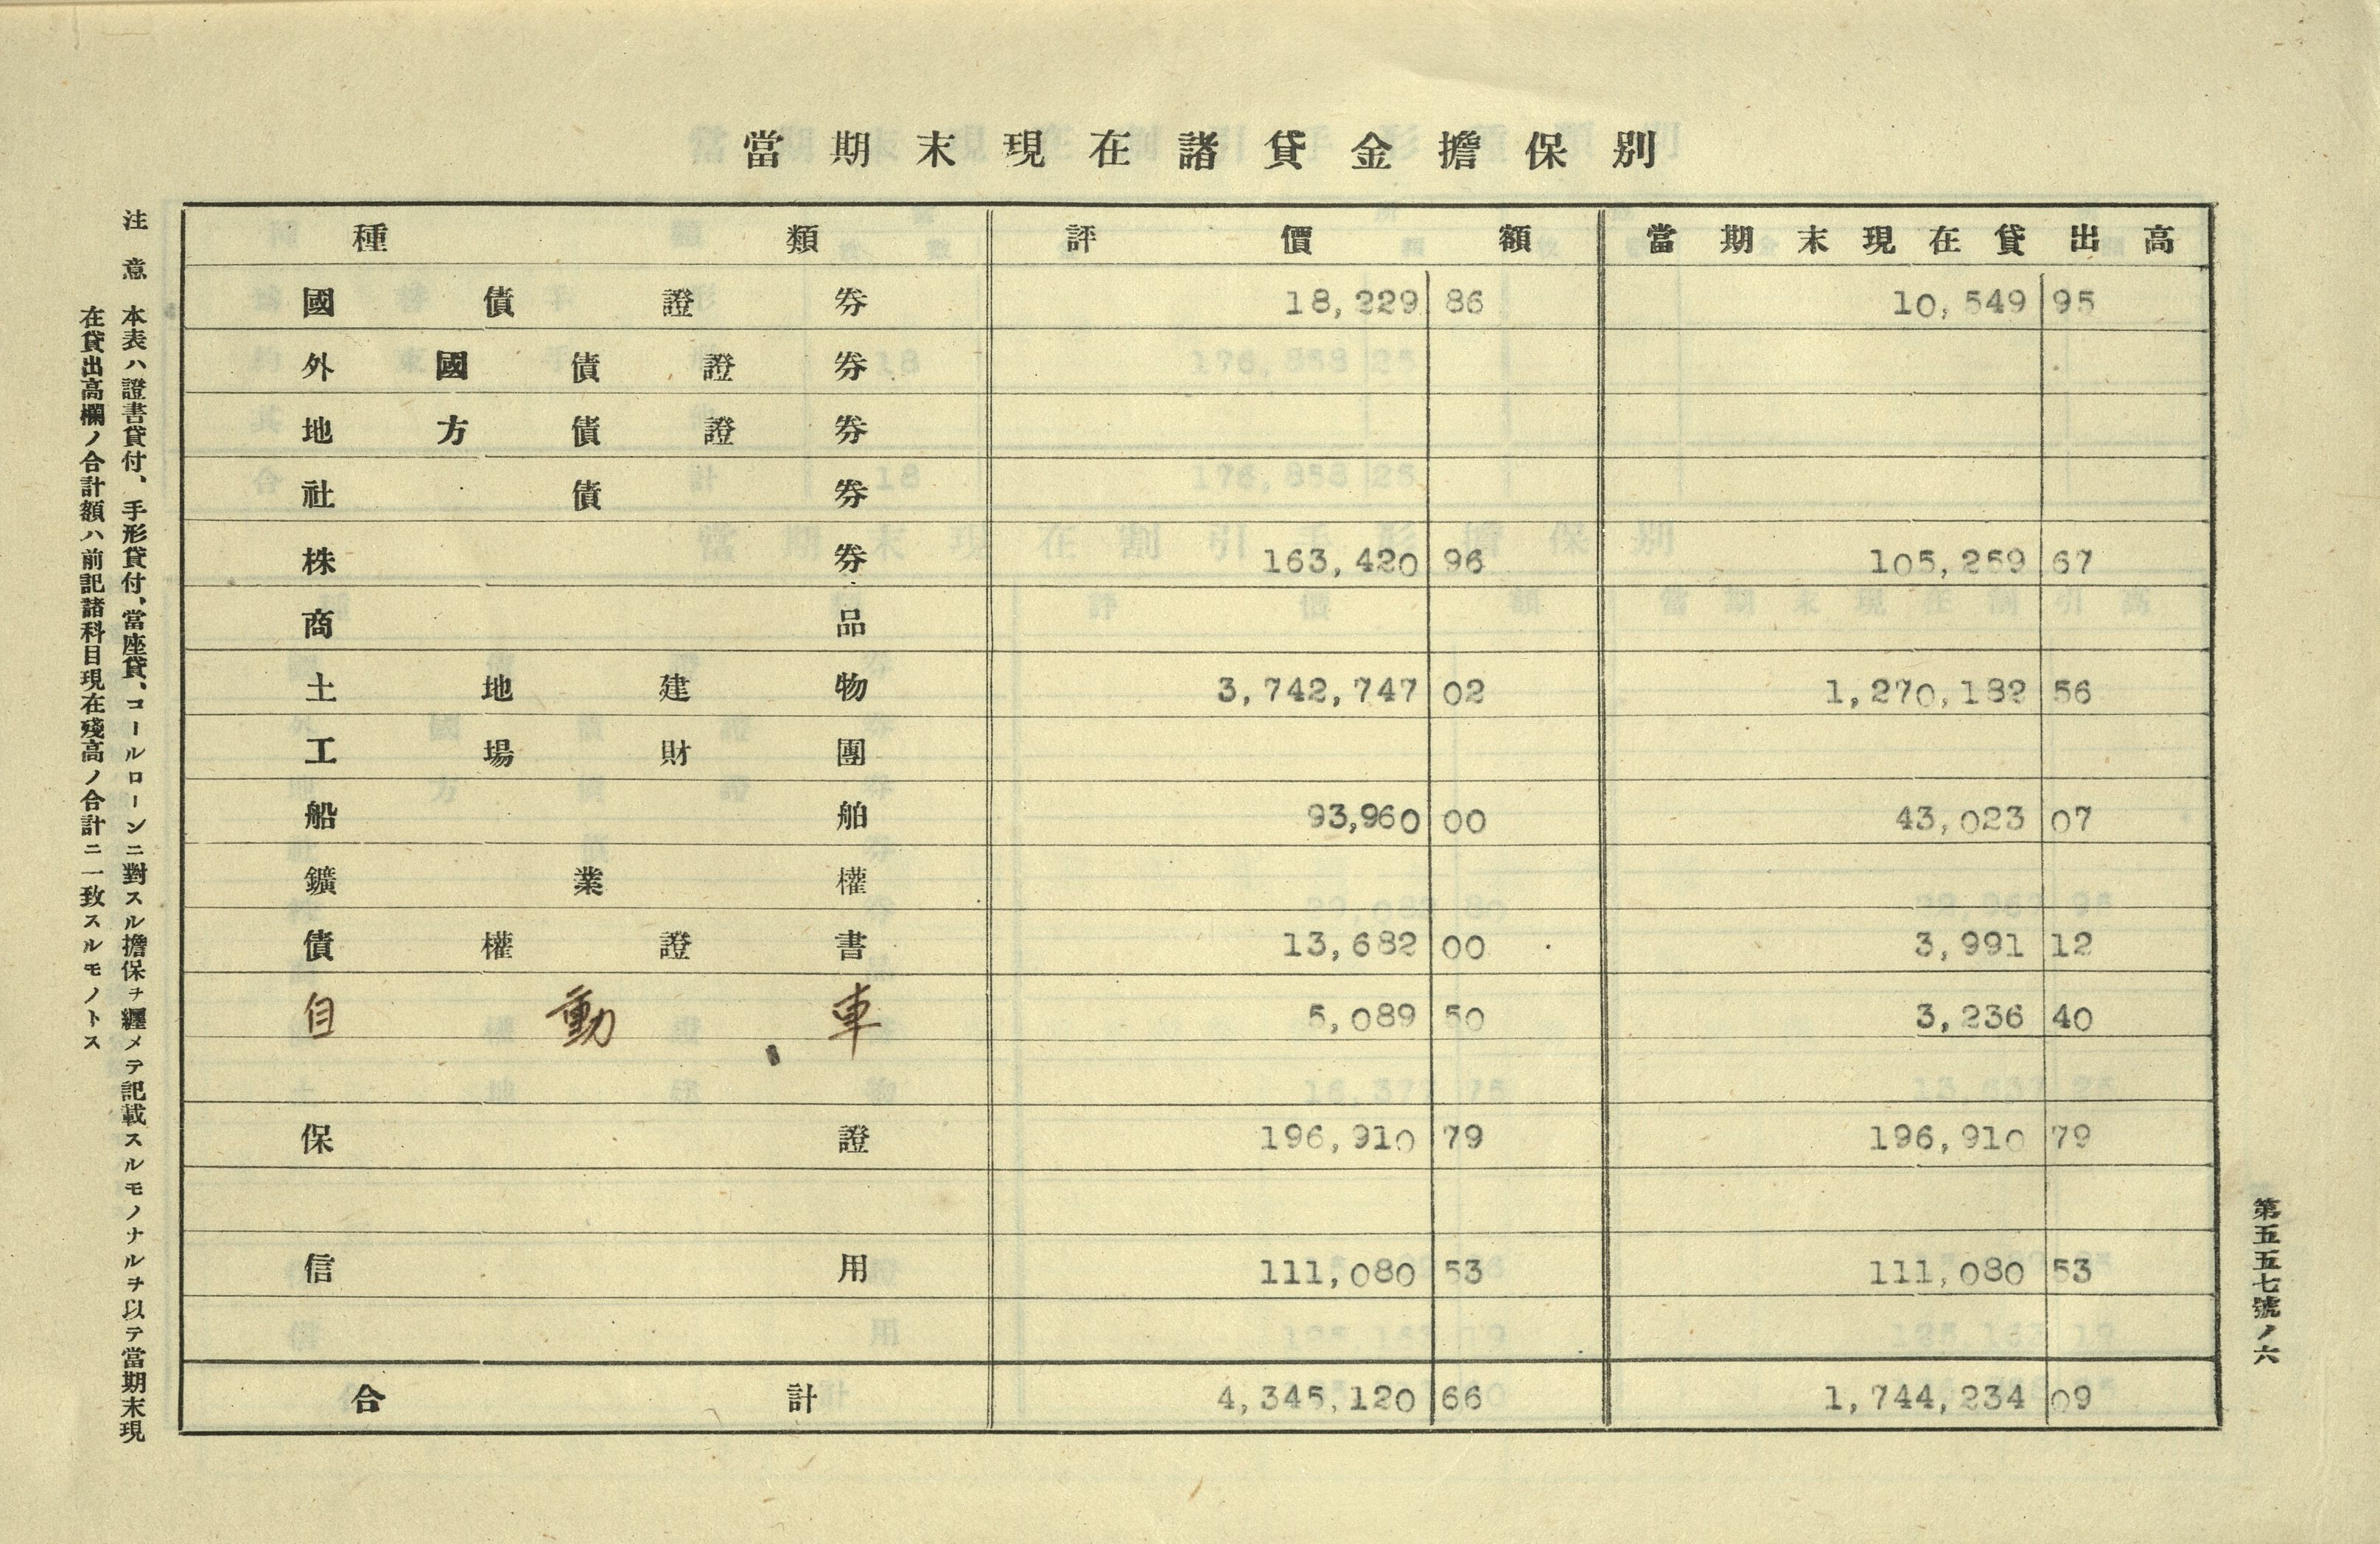 當期末現在諸貸金擔保別
種類 評價額 當期末現在貸出高
國債證券 18,229 86 10,549 95
外國債證券
地方債證券
社債券
株券 163,420 96 105,259 67
商品
土地建物 3,742,747 02 1,270,182 56
工場財團
船舶 93,960 00 43,023 07
鑛業權
債權證書 13,682 00 3,991 12
自動車 5,089 50 3,236 40
保證 196,910 79 196,910 79
信用 111,080 53 111,080 53
合計 4,345,120 66 1,744,234 09
第五五七號ノ六
注意 本表ハ證書貸付、手形貸付、當座貸、コールローンニ對スル擔保ヲ纒メテ記載スルモノナルヲ以テ當期末現
在貸出高欄ノ合計額ハ前記諸科目現在殘高ノ合計ニ一致スルモノトス